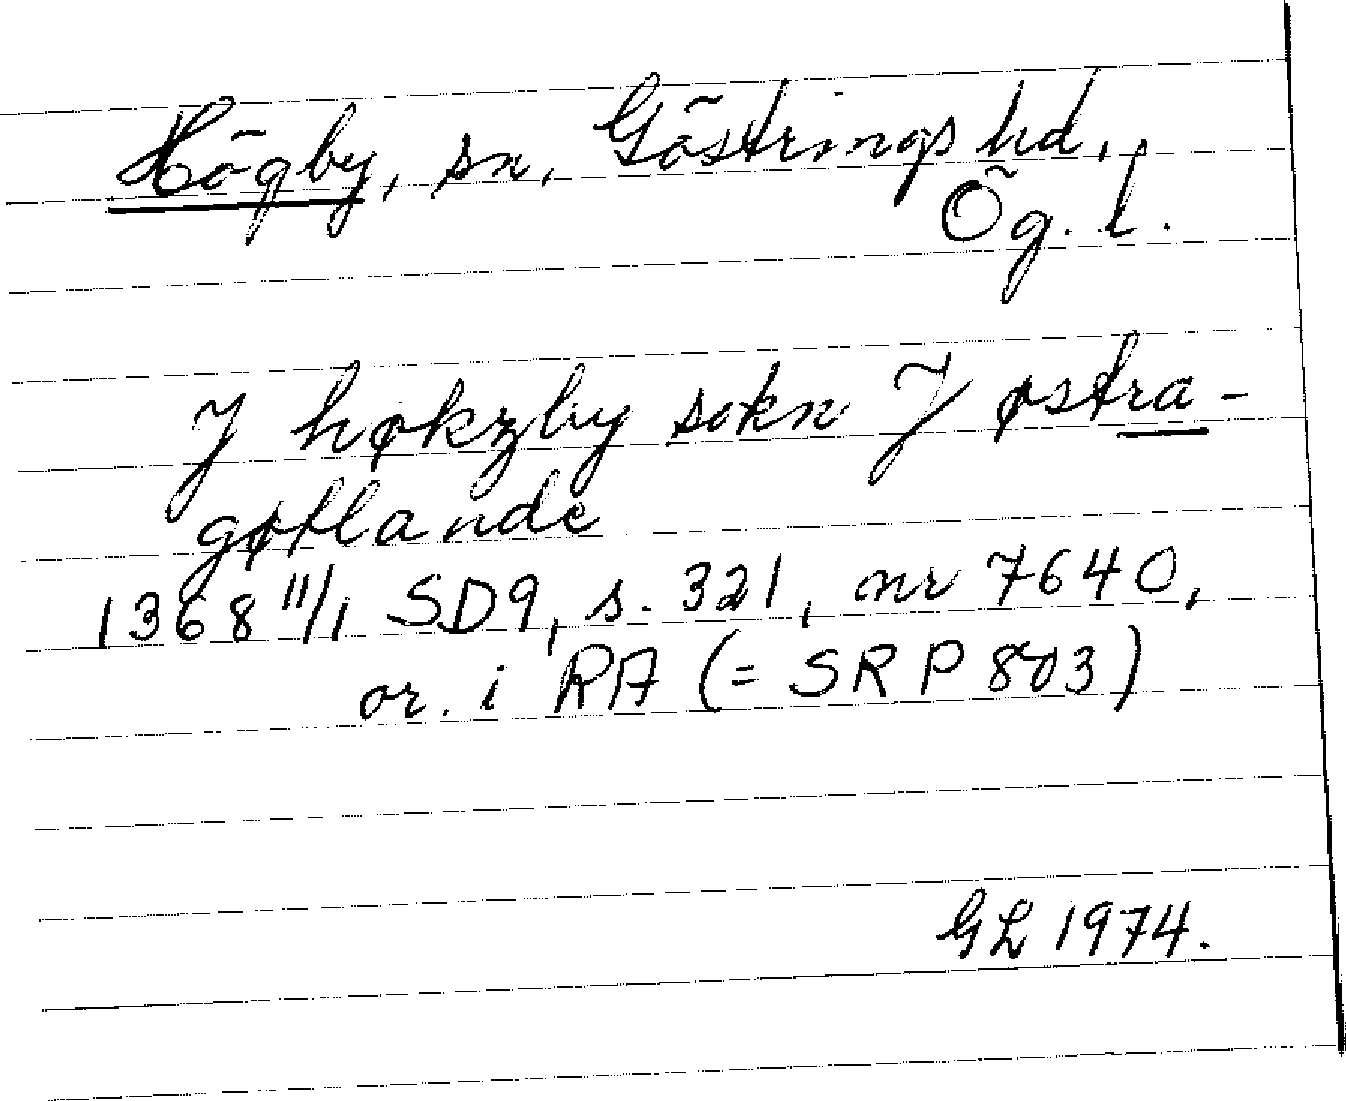 Högby, sn, Göstrings hd,
Ög. l.
J høkzby sokn J østra-
gøtlande
1368 11/1 SD9, s. 321, nr 7640,
or. i RA (= SRP 803)
GL 1974.